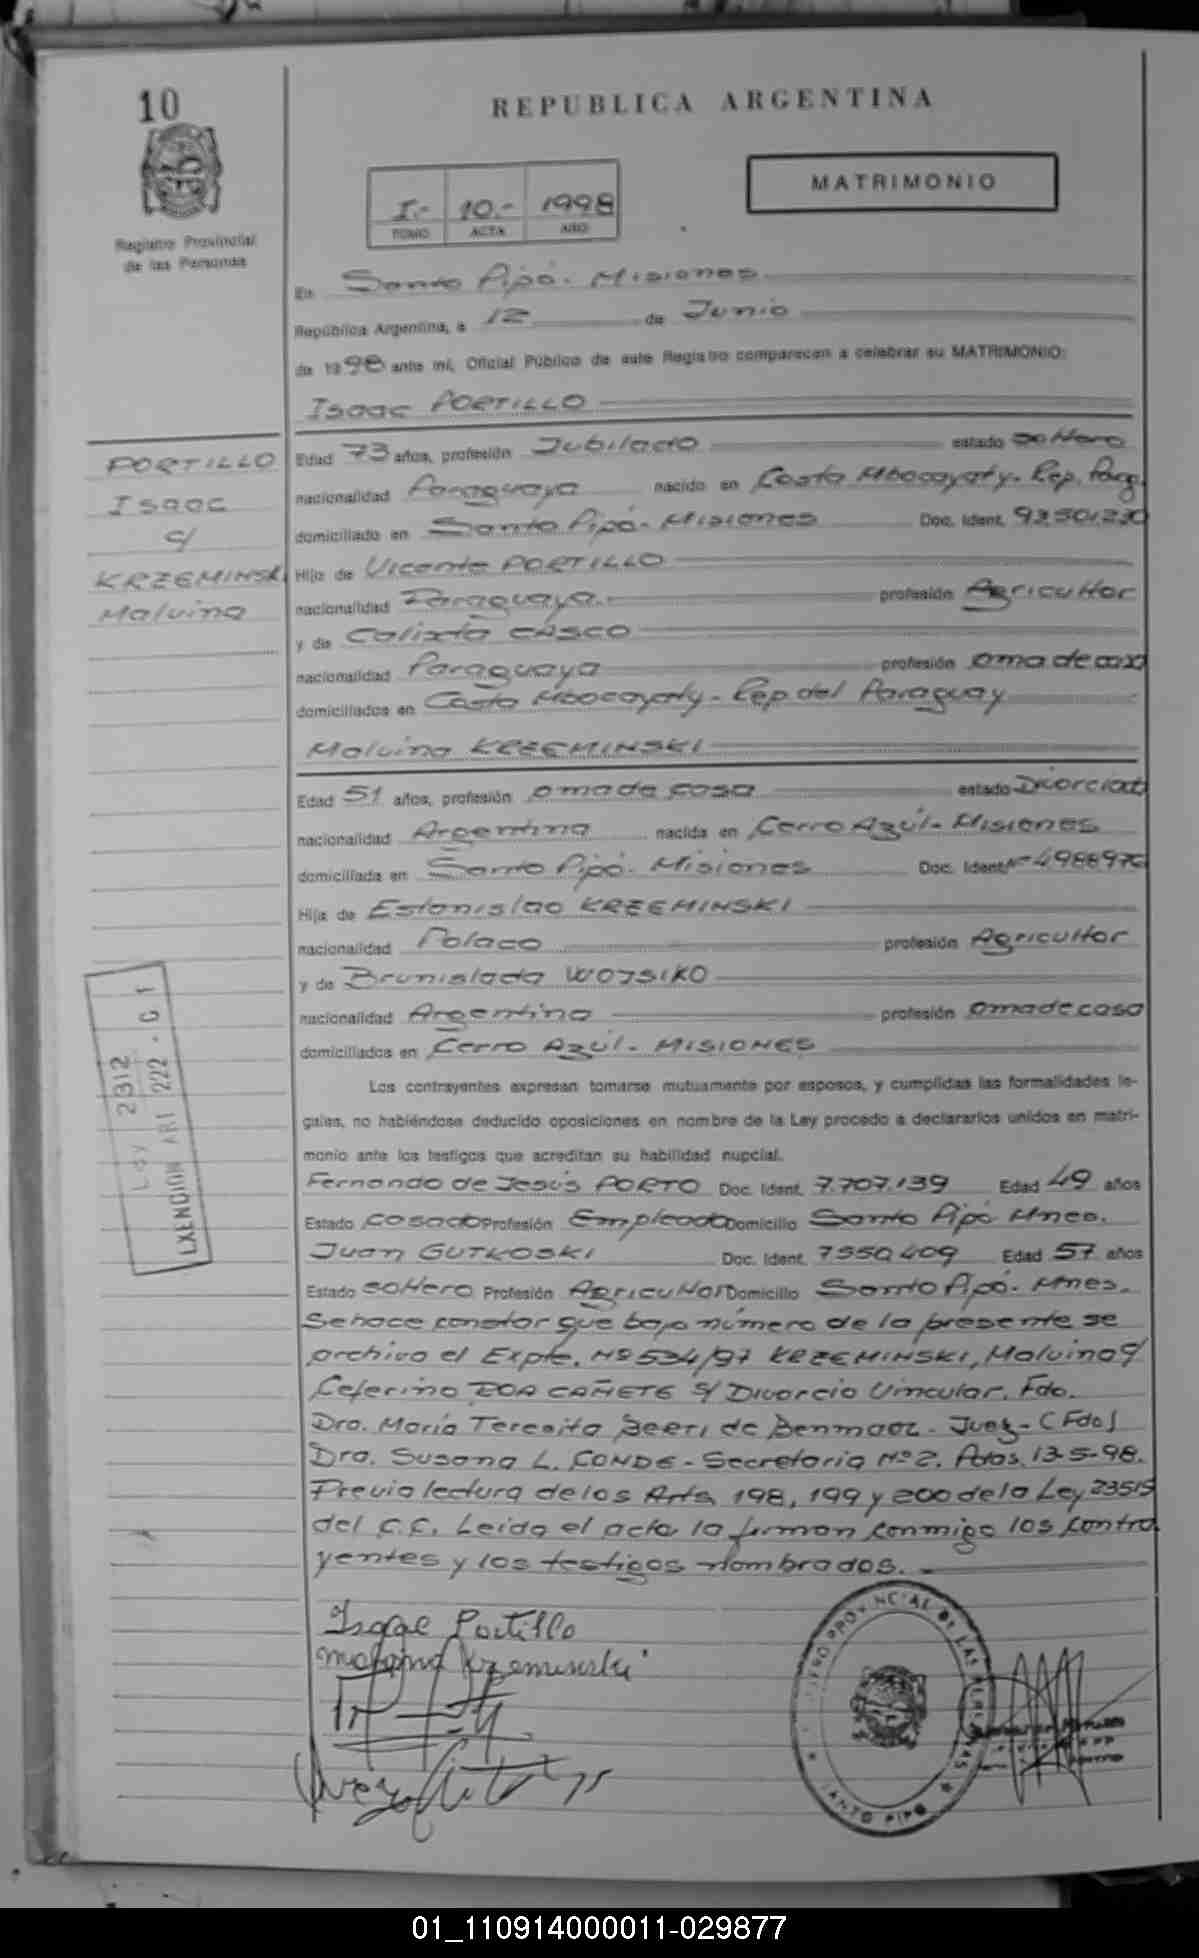 10
REPUBLICA ARGENTINA
I.- 10.- 1998
TOMO ACTA AÑO
MATRIMONIO
Registro Provincial
de las Personas
En Santo Pipó. Misiones
República Argentina, a 12 de Junio
de 1998 ante mí, Oficial Público de este Registro comparecen a celebrar su MATRIMONIO:
Isaac PORTILLO
PORTILLO
Isaac
c/
KRZEMINSKI
Malvina
Edad 73 años, profesión Jubilado estado soltero
nacionalidad Paraguaya nacido en Costa Mbocayaty. Rep. Parg.
domiciliado en Santo Pipó. Misiones Doc. Ident. 92.501.230
Hijo de Vicente PORTILLO
nacionalidad Paraguaya. profesión Agricultor
y de Calixta CASCO
nacionalidad Paraguaya profesión ama de casa
domiciliados en Costa Mbocayaty - Rep. del Paraguay
Malvina KRZEMINSKI
Edad 51 años, profesión ama de casa estado Divorciada
nacionalidad Argentina nacida en Cerro Azúl - Misiones
domiciliada en Santo Pipó. Misiones Doc. Ident. Nº 4988976
Hija de Estanislao KRZEMINSKI
nacionalidad Polaco profesión Agricultor
y de Brunislada WOJSIKO
nacionalidad Argentina profesión ama de casa
domiciliados en Cerro Azúl - MISIONES
Ley 2312
EXENCION ART 222 - G 1
Los contrayentes expresan tomarse mutuamente por esposos, y cumplidas las formalidades le-
gales, no habiéndose deducido oposiciones en nombre de la Ley procedo a declararlos unidos en matri-
monio ante los testigos que acreditan su habilidad nupcial.
Fernando de Jesús PORTO Doc. Ident. 7.707.139 Edad 49 años
Estado casado Profesión Empleado Domicilio Santo Pipó Mnes.
Juan GUTKOSKI Doc. Ident. 7550409 Edad 57 años
Estado soltero Profesión Agricultor Domicilio Santo Pipó. Mnes.
Se hace constar que bajo número de la presente se
archiva el Expte. Nº 534/97 KRZEMINSKI, Malvina c/
Ceferino ROA CAÑETE s/ Divorcio Vincular. Fdo.
Dra. María Teresita de Benmaor - Juez - (Fdo)
Dra. Susana L. CONDE - Secretaria Nº 2. Pdas. 13-5-98.
Previa lectura de los Arts 198, 199 y 200 de la Ley 23515
del C.C. Leida el acta la firman conmigo los contra
yentes y los testigos nombrados.
Isaac Portillo
Malvina Krzeminski
REGISTRO PROVINCIAL DE LAS PERSONAS
SANTO PIPO
01_110914000011-029877